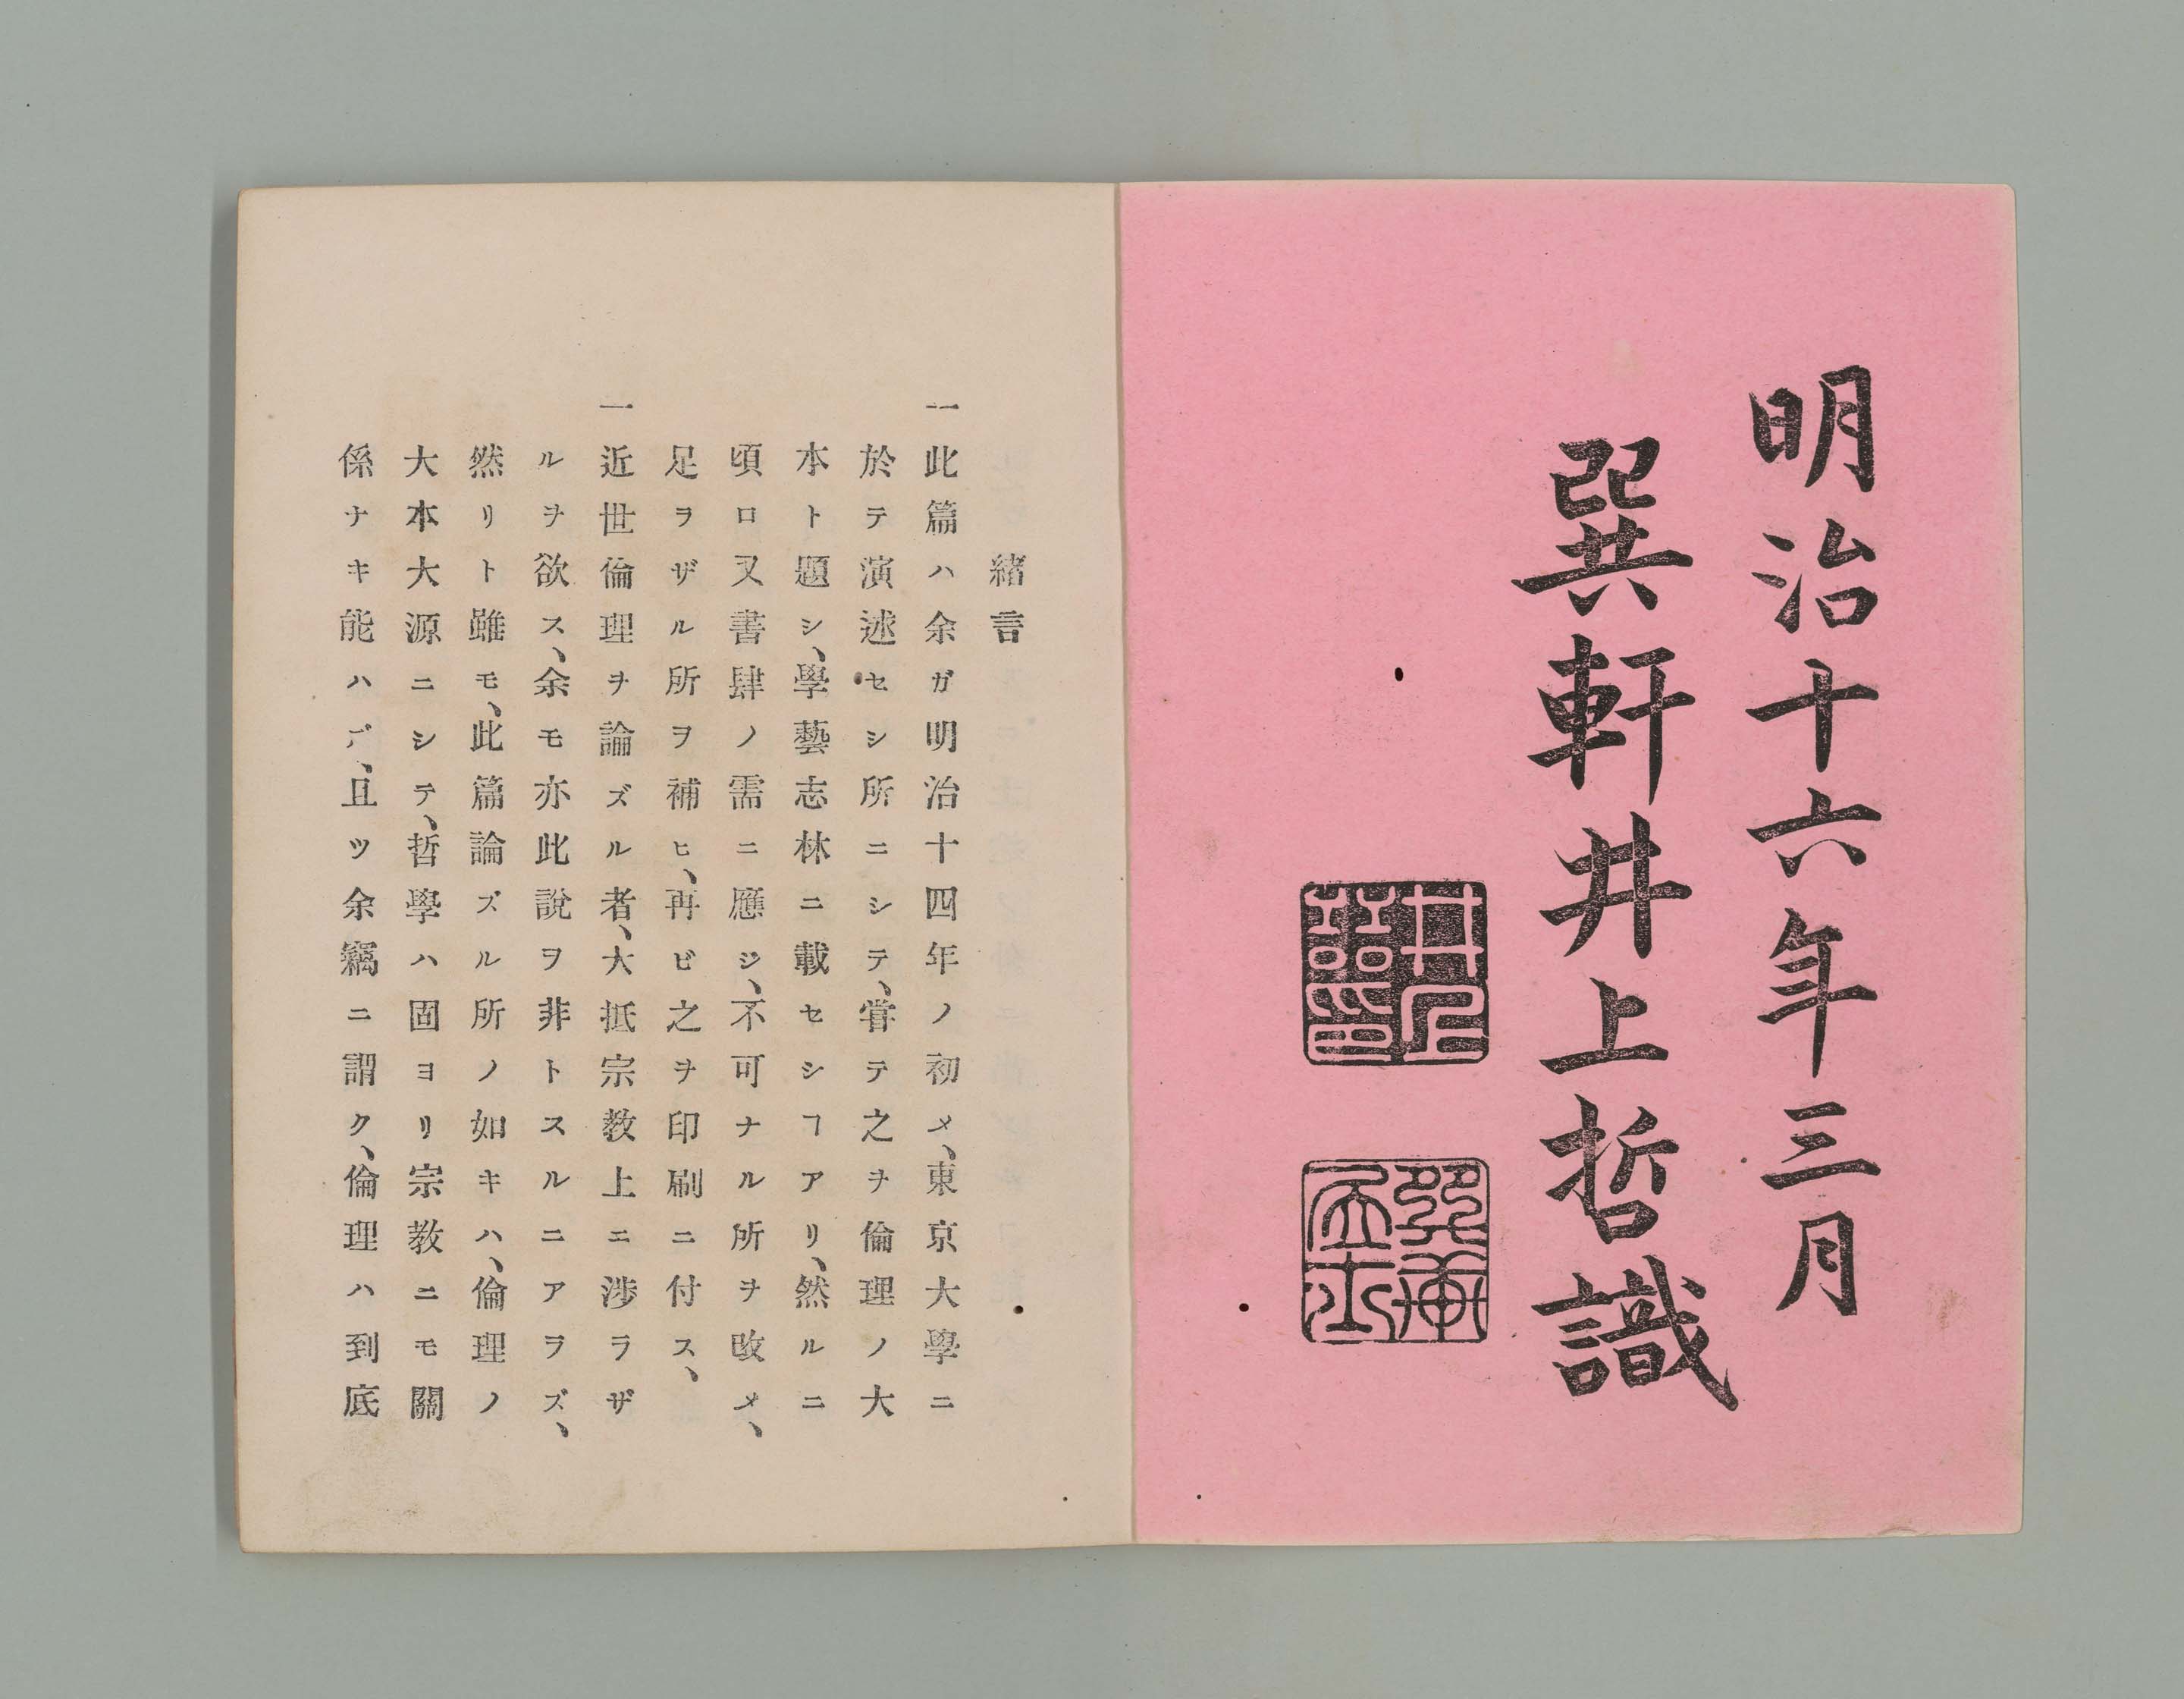 明治十六年三月
巽軒井上哲識
緒言
一此篇ハ余ガ明治十四年ノ初メ、東京大學ニ
於テ演述セシ所ニシテ、嘗テ之ヲ倫理ノ大
本ト題シ、學藝志林ニ載セシヿアリ、然ルニ
頃ロ又書肆ノ需ニ應ジ、不可ナル所ヲ改メ、
足ラザル所ヲ補ヒ、再ビ之ヲ印刷ニ付ス、
一近世倫理ヲ論ズル者、大抵宗教上ニ渉ラザ
ルヲ欲ス、余モ亦此說ヲ非トスルニアラズ、
然リト雖モ、此篇論ズル所ノ如キハ、倫理ノ
大本大源ニシテ、哲學ハ固ヨリ宗教ニモ關
係ナキ能ハズ、且ツ余竊ニ謂ク、倫理ハ到底